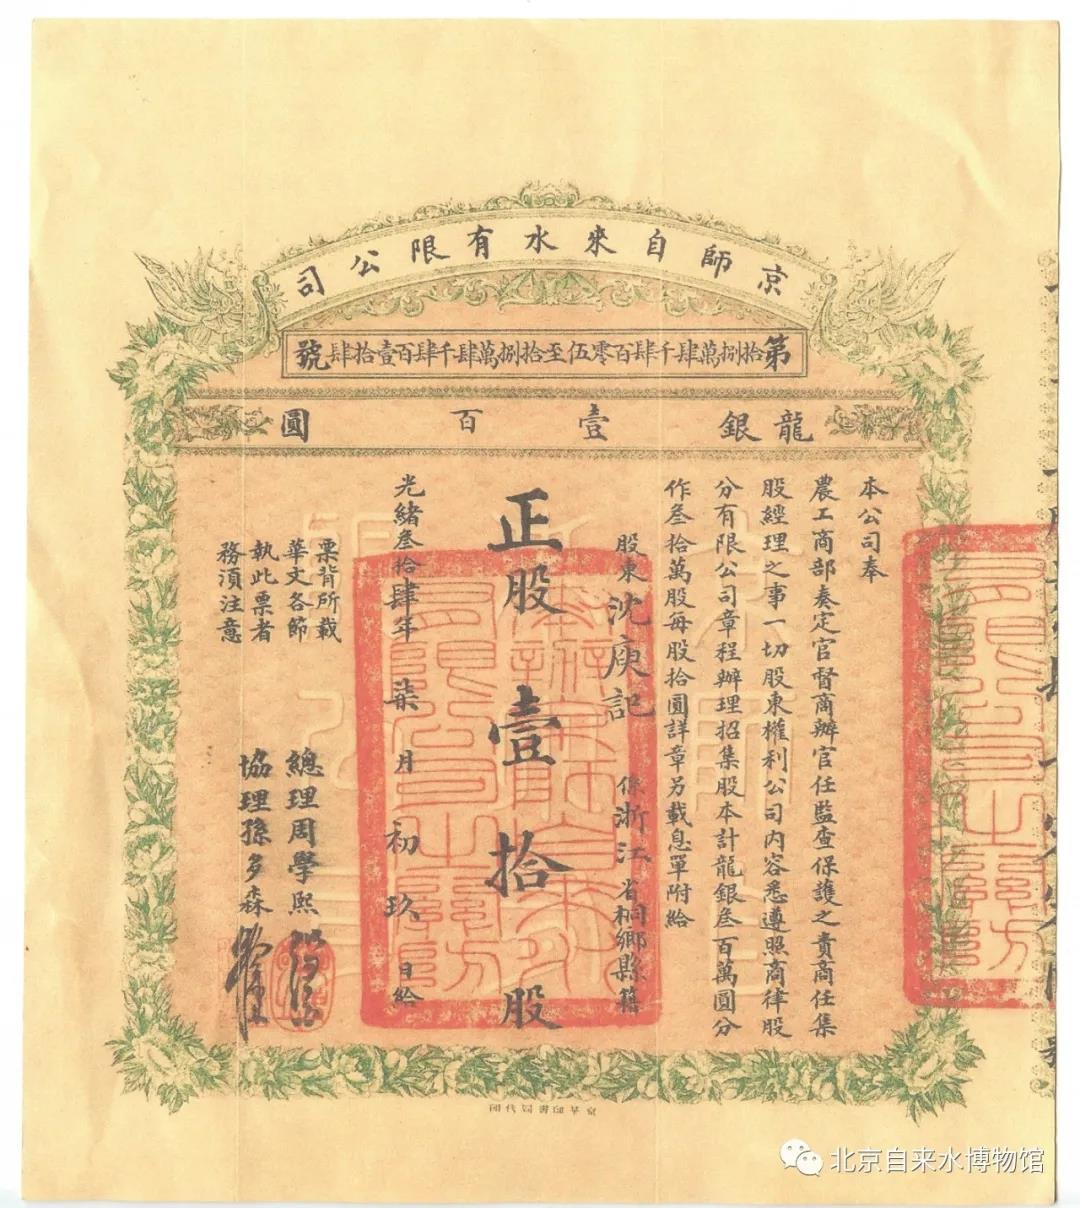 京師自來水有限公司
第拾捌萬肆千肆百零伍至拾捌萬肆千肆百壹拾肆號
龍銀壹百圓
本公司奉
農工商部奏定官督商辦官任監查保護之責商任集
股經理之事一切股東權利公司內容悉遵照商律股
分有限公司章程辦理招集股本計龍銀叁百萬圓分
作叁拾萬股每股拾圓詳章另載息單附給
股東沈庚記 係浙江省桐鄉縣籍
正股壹拾股
光緒叁拾肆年柒月初玖日給
票背所載
華文各節
執此票者
務須注意
總理周學熙
協理孫多森
北京自来水博物馆